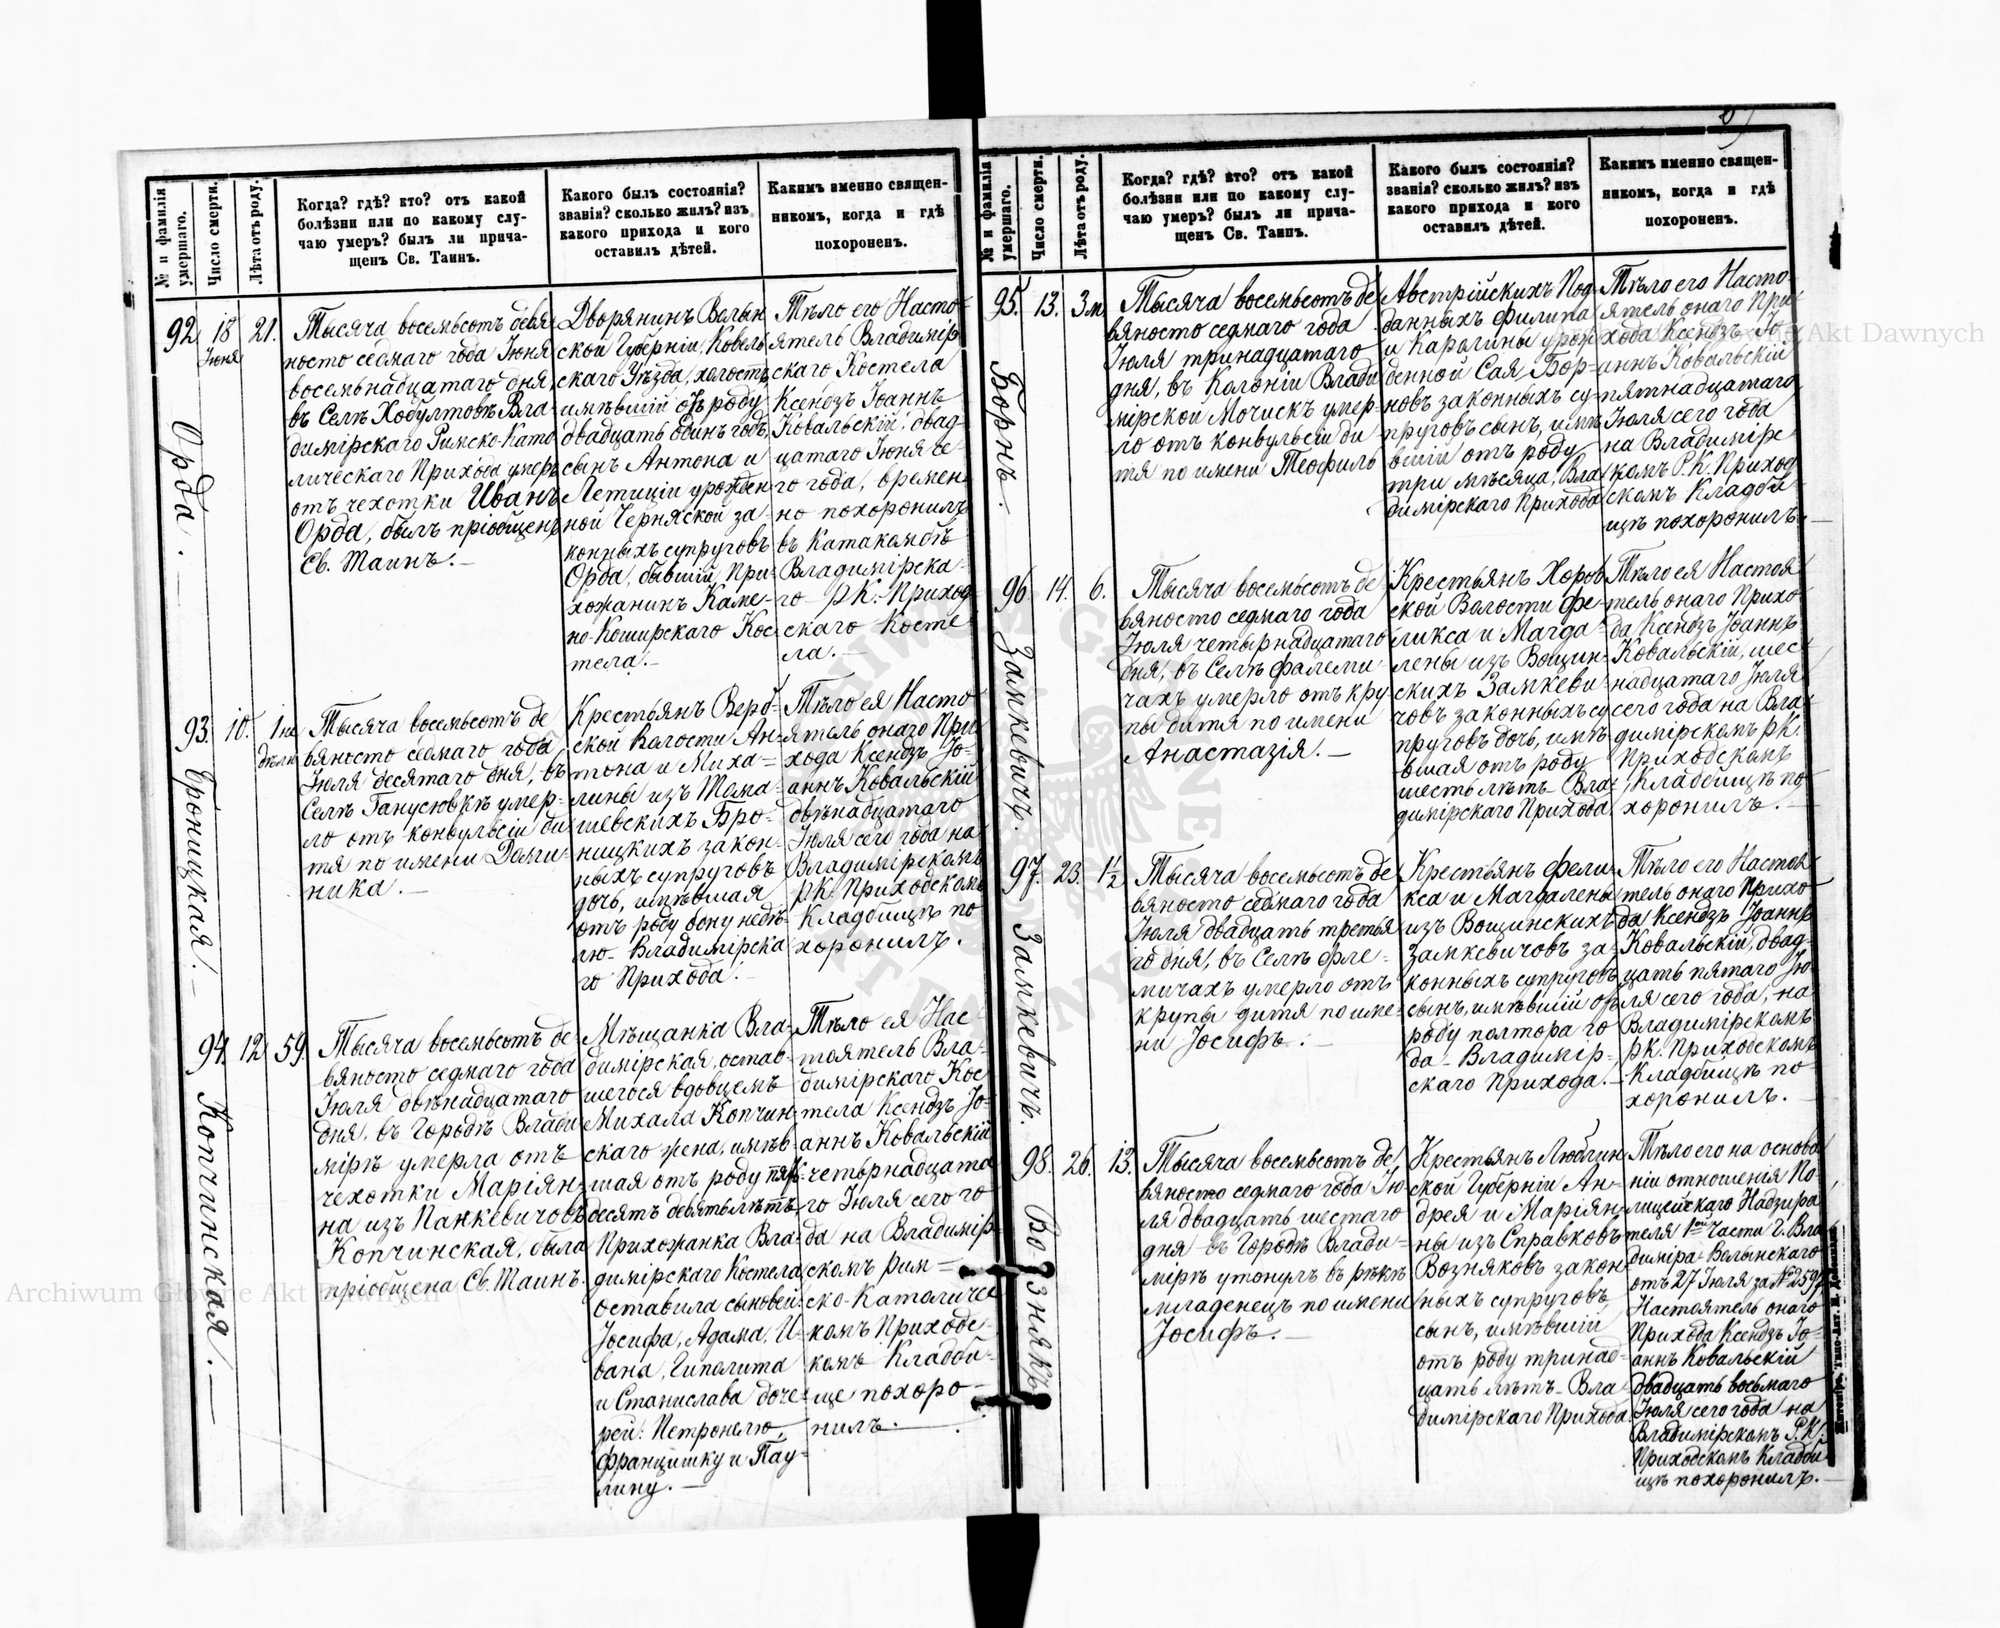 № и фамилія умершаго.
Число смерти.
Лѣта отъ роду.
Когда? гдѣ? кто? отъ какой
болѣзни или по какому слу-
чаю умеръ? былъ ли прича-
щенъ Св. Таинъ.
Какого былъ состоянія?
званія? сколько жилъ? изъ
какого прихода и кого
оставилъ дѣтей.
Какимъ именно священ-
никомъ, когда и гдѣ
похороненъ.
92
Орда.
18
Іюня
21.
Тысяча восемьсотъ девя-
носто седмаго года Іюня
восемьнадцатаго дня,
въ Селѣ Хобултовѣ Вла-
димірскаго Римско-Като
лическаго Прихода умеръ
отъ чехотки Иванъ
Орда, былъ пріобщенъ
Св. Таинъ.
Дворянинъ Волын
ской Губерніи, Ковель
скаго Уѣзда, холостъ,
имѣвшій отъ роду
двадцать одинъ годъ,
сынъ Антона и
Летиціи урожден-
ной Черняской за-
конныхъ супруговъ
Орда, бывшій При-
хожанинъ Каме-
но-Коширскаго Кос-
тела.
Тѣло его Насто-
ятель Владимір
скаго Костела
Ксендзъ Іоаннъ
Ковальскій, двад-
цатаго Іюня се-
го года, времен-
но похоронилъ
въ Катакомбѣ
Владимірска-
го Р.К. Приход-
скаго Косте-
ла.
93.
Броницкая.
10.
1 не
дѣлю
Тысяча восемьсотъ де
вяносто седмаго года,
Іюля десятаго дня, въ
Селѣ Ганусювкѣ умер-
ло отъ конвульсіи ди
тя по имени Доми-
ника.
Крестьянъ Верб-
ской Волости Ан-
тона и Миха-
лины изъ Тома-
шевскихъ Бро-
ницкихъ закон-
ныхъ супруговъ
дочь, имѣвшая
отъ роду одну недѣ-
лю- Владимірска
го Прихода.
Тѣло ея Насто
ятель онаго При
хода Ксендзъ Іо-
аннъ Ковальскій
двѣнадцатаго
Іюля сего года на
Владимірскомъ
Р.К. Приходскомъ
Кладбищѣ по
хоронилъ.
94.
Копчинская.
12
59.
Тысяча восемьсотъ де
вяносто седмаго года
Іюля двѣнадцатаго
дня, въ Городѣ Влади
мірѣ умерла отъ
чехотки Маріян-
на изъ Панкевичовъ
Копчинская, была
пріобщена Св. Таинъ.
Мѣщанка Вла-
димірская, остав-
шегося вдовцемъ
Михала Копчин-
скаго жена, имѣв-
шая отъ роду пять
десятъ девять лѣтъ,
Прихожанка Вла-
димірскаго Костела
оставила сыновей:
Іосифа, Адама, И-
вана, Гиполита
и Станислава доче-
рей: Петронелю,
Францишку и Пау-
лину.
Тѣло ея Нас
тоятель Вла-
димірскаго Кос
тела Ксендзъ Іо-
аннъ Ковальскій
четырнадцата
го Іюля сего го
да на Владимір-
скомъ Рим-
ско-Католичес
комъ Приходс-
комъ Кладби-
ще похоро-
нилъ.
№ и фамилія умершаго.
Число смерти.
Лѣта отъ роду.
Когда? гдѣ? кто? отъ какой
болѣзни или по какому слу-
чаю умеръ? былъ ли прича-
щенъ Св. Таинъ.
Какого былъ состоянія?
званія? сколько жилъ? изъ
какого прихода и кого
оставилъ дѣтей.
Какимъ именно священ-
никомъ, когда и гдѣ
похороненъ.
95.
Борнъ.
13.
3 м.
Тысяча восемьсотъ де
вяносто седмаго года,
Іюля тринадцатаго
дня, въ Колоніи Влади
мірской Мочискъ умер-
ло отъ конвульсіи ди
тя по имени Теофиль
Австрійскихъ Под
данныхъ Филипа
и Каролины урож
денной Сая, Бор-
новъ законныхъ су-
пруговъ сынъ, имѣ
вшій отъ роду
три мѣсяца, Вла
димірскаго Прихода
Тѣло его Насто-
ятель онаго При
хода Ксендзъ Іо-
аннъ Ковальскій
пятнадцатаго
Іюля сего года
на Владимірс
комъ Р.К. Приход
скомъ Кладби
щѣ похоронилъ.
96.
Замкевичъ.
14.
6.
Тысяча восемьсотъ де-
вяносто седмаго года
Іюля четырнадцатаго
дня, въ Селѣ Фалеми
чахъ умерло отъ кру
пы дитя по имени
Анастазія.
Крестьянъ Хоров
ской Волости Фе-
ликса и Магда-
лены изъ Вощин-
скихъ Замкеви
човъ законныхъ су
пруговъ дочь, имѣ-
вшая отъ роду
шесть лѣтъ- Вла-
димірскаго Прихода.
Тѣло ея Настоя
тель онаго Прихо-
да Ксендзъ Іоаннъ
Ковальскій, шес-
надцатаго Іюля
сего года на Вла
димірскомъ Р.К.
Приходскомъ
Кладбищѣ по-
хоронилъ.
97.
Замкевичъ.
23.
1½
Тысяча восемьсотъ де
вяносто седмаго года
Іюля двадцать третья
го дня, въ Селѣ Фле-
мичахъ умерло отъ
крупы дитя по име-
ни Іосифъ.
Крестьянъ Фели-
кса и Магдалены
изъ Вощинскихъ
Замкевичовъ за-
конныхъ супруговъ
сынъ, имѣвшій отъ
роду полтора го
да- Владимір-
скаго Прихода.
Тѣло его Настоя-
тель онаго Прихо
да Ксендзъ Іоаннъ
Ковальскій, двад-
цать пятаго Ію-
ля сего года, на
Владимірскомъ
Р.К. Приходскомъ
Кладбищѣ по-
хоронилъ.
98.
Вознякъ
26.
13.
Тысяча восемьсотъ де
вяносто седмаго года Ію
ля двадцать шестаго
дня въ Городѣ Влади-
мірѣ утонулъ въ рѣкѣ
младенецъ по имени
Іосифъ.
Крестьянъ Люблин
ской Губерніи Ан-
дрея и Маріян-
ны изъ Справковъ
Возняковъ закон
ныхъ супруговъ
сынъ, имѣвшій
отъ роду тринад-
цать лѣтъ- Вла-
димірскаго Прихода
Тѣло его на основа
ніи отношенія По-
лицейскаго Надзира
теля 1ой Части г. Вла
диміра-Волынскаго
отъ 27 Іюля за №2597
Настоятель онаго
Прихода Ксендзъ Іо-
аннъ Ковальскій
двадцать восьмаго
Іюля сего года на
Владимірскомъ Р.К.
Приходскомъ Кладби
щѣ похоронилъ.
Archiwum Główne Akt Dawnych
Akt Dawnych